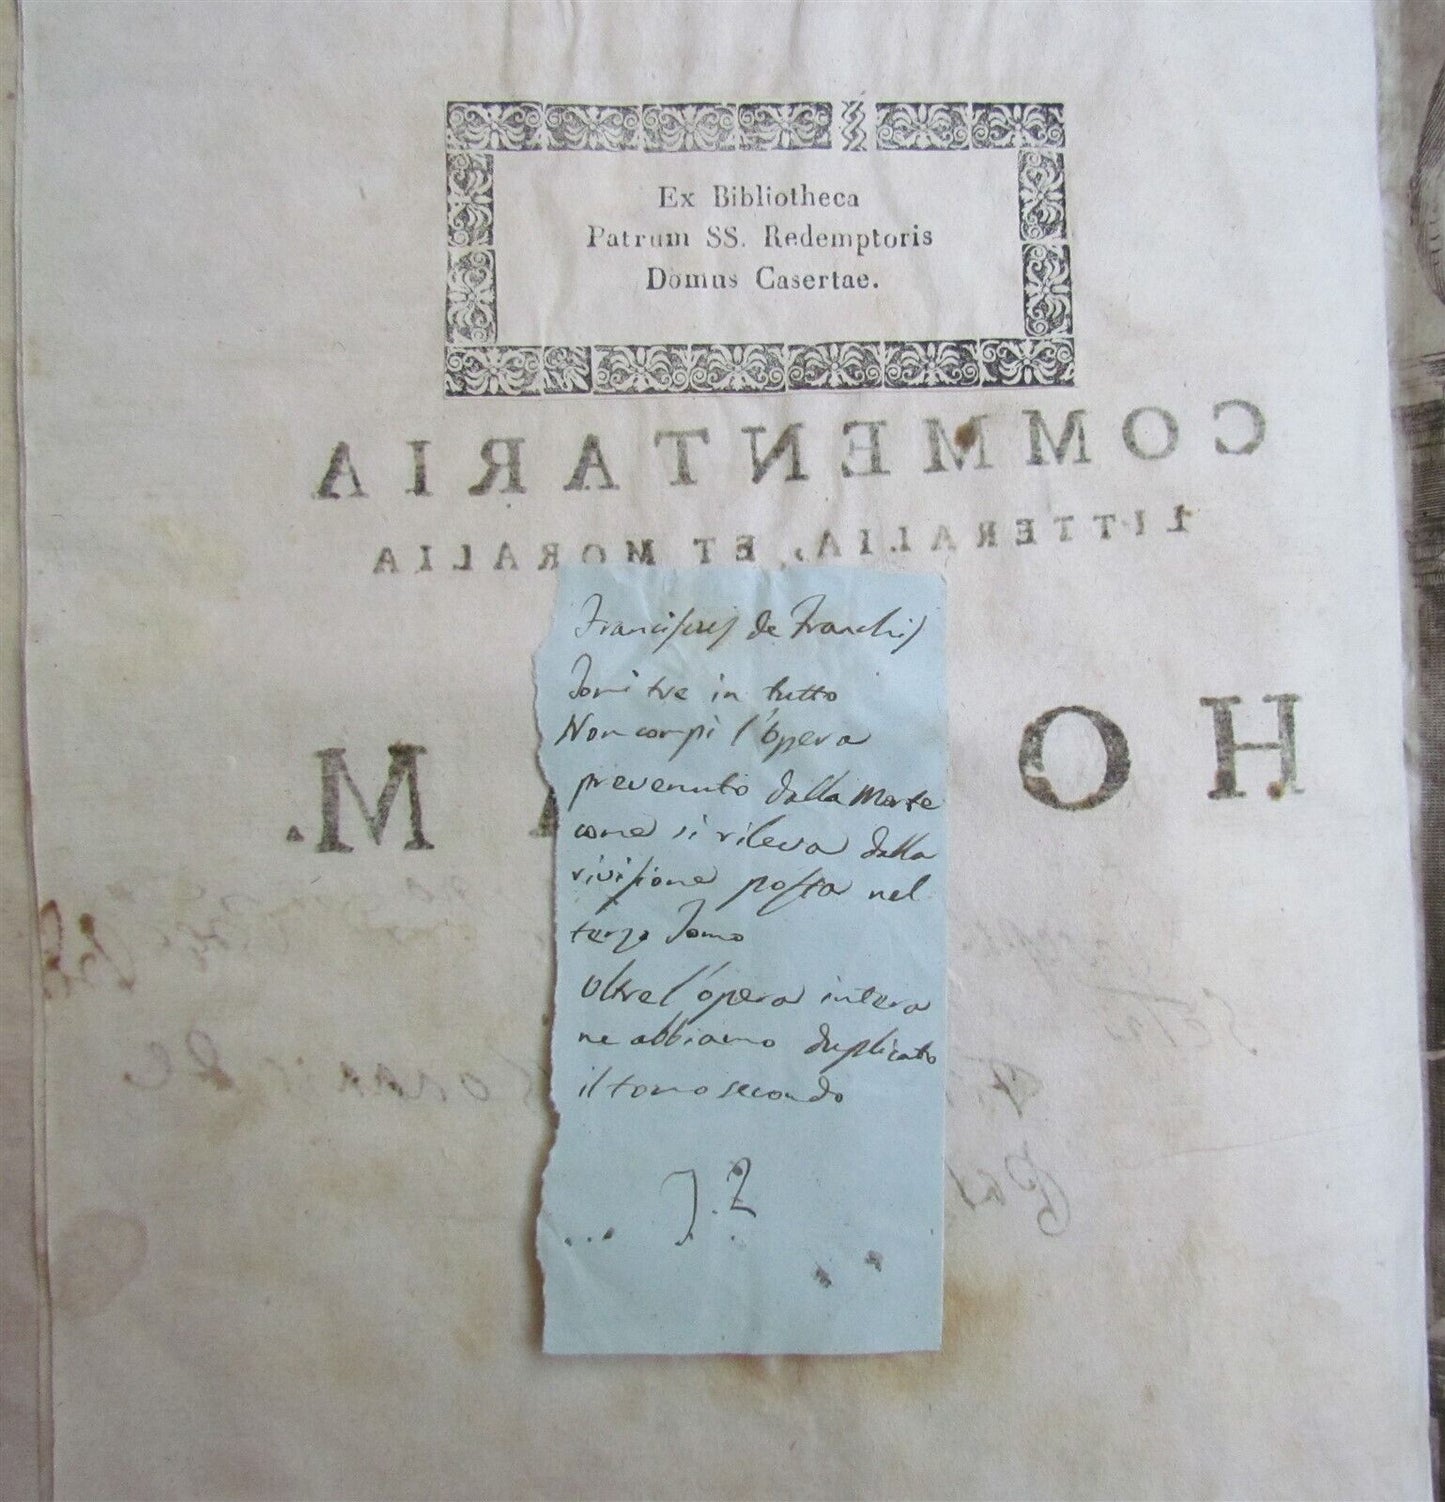 Ex Bibliotheca
Patrum SS. Redemptoris
Domus Casertae.
COMMENTARIA
LITTERALIA, ET MORALIA
HO M.
Franciscus de Franchis
Tomi tre in tutto
Non compì l'opera
prevenuto dalla Morte
come si rileva dalla
rivisione posta nel
terzo Tomo
Oltre l'opera intera
ne abbiamo duplicato
il tomo secondo